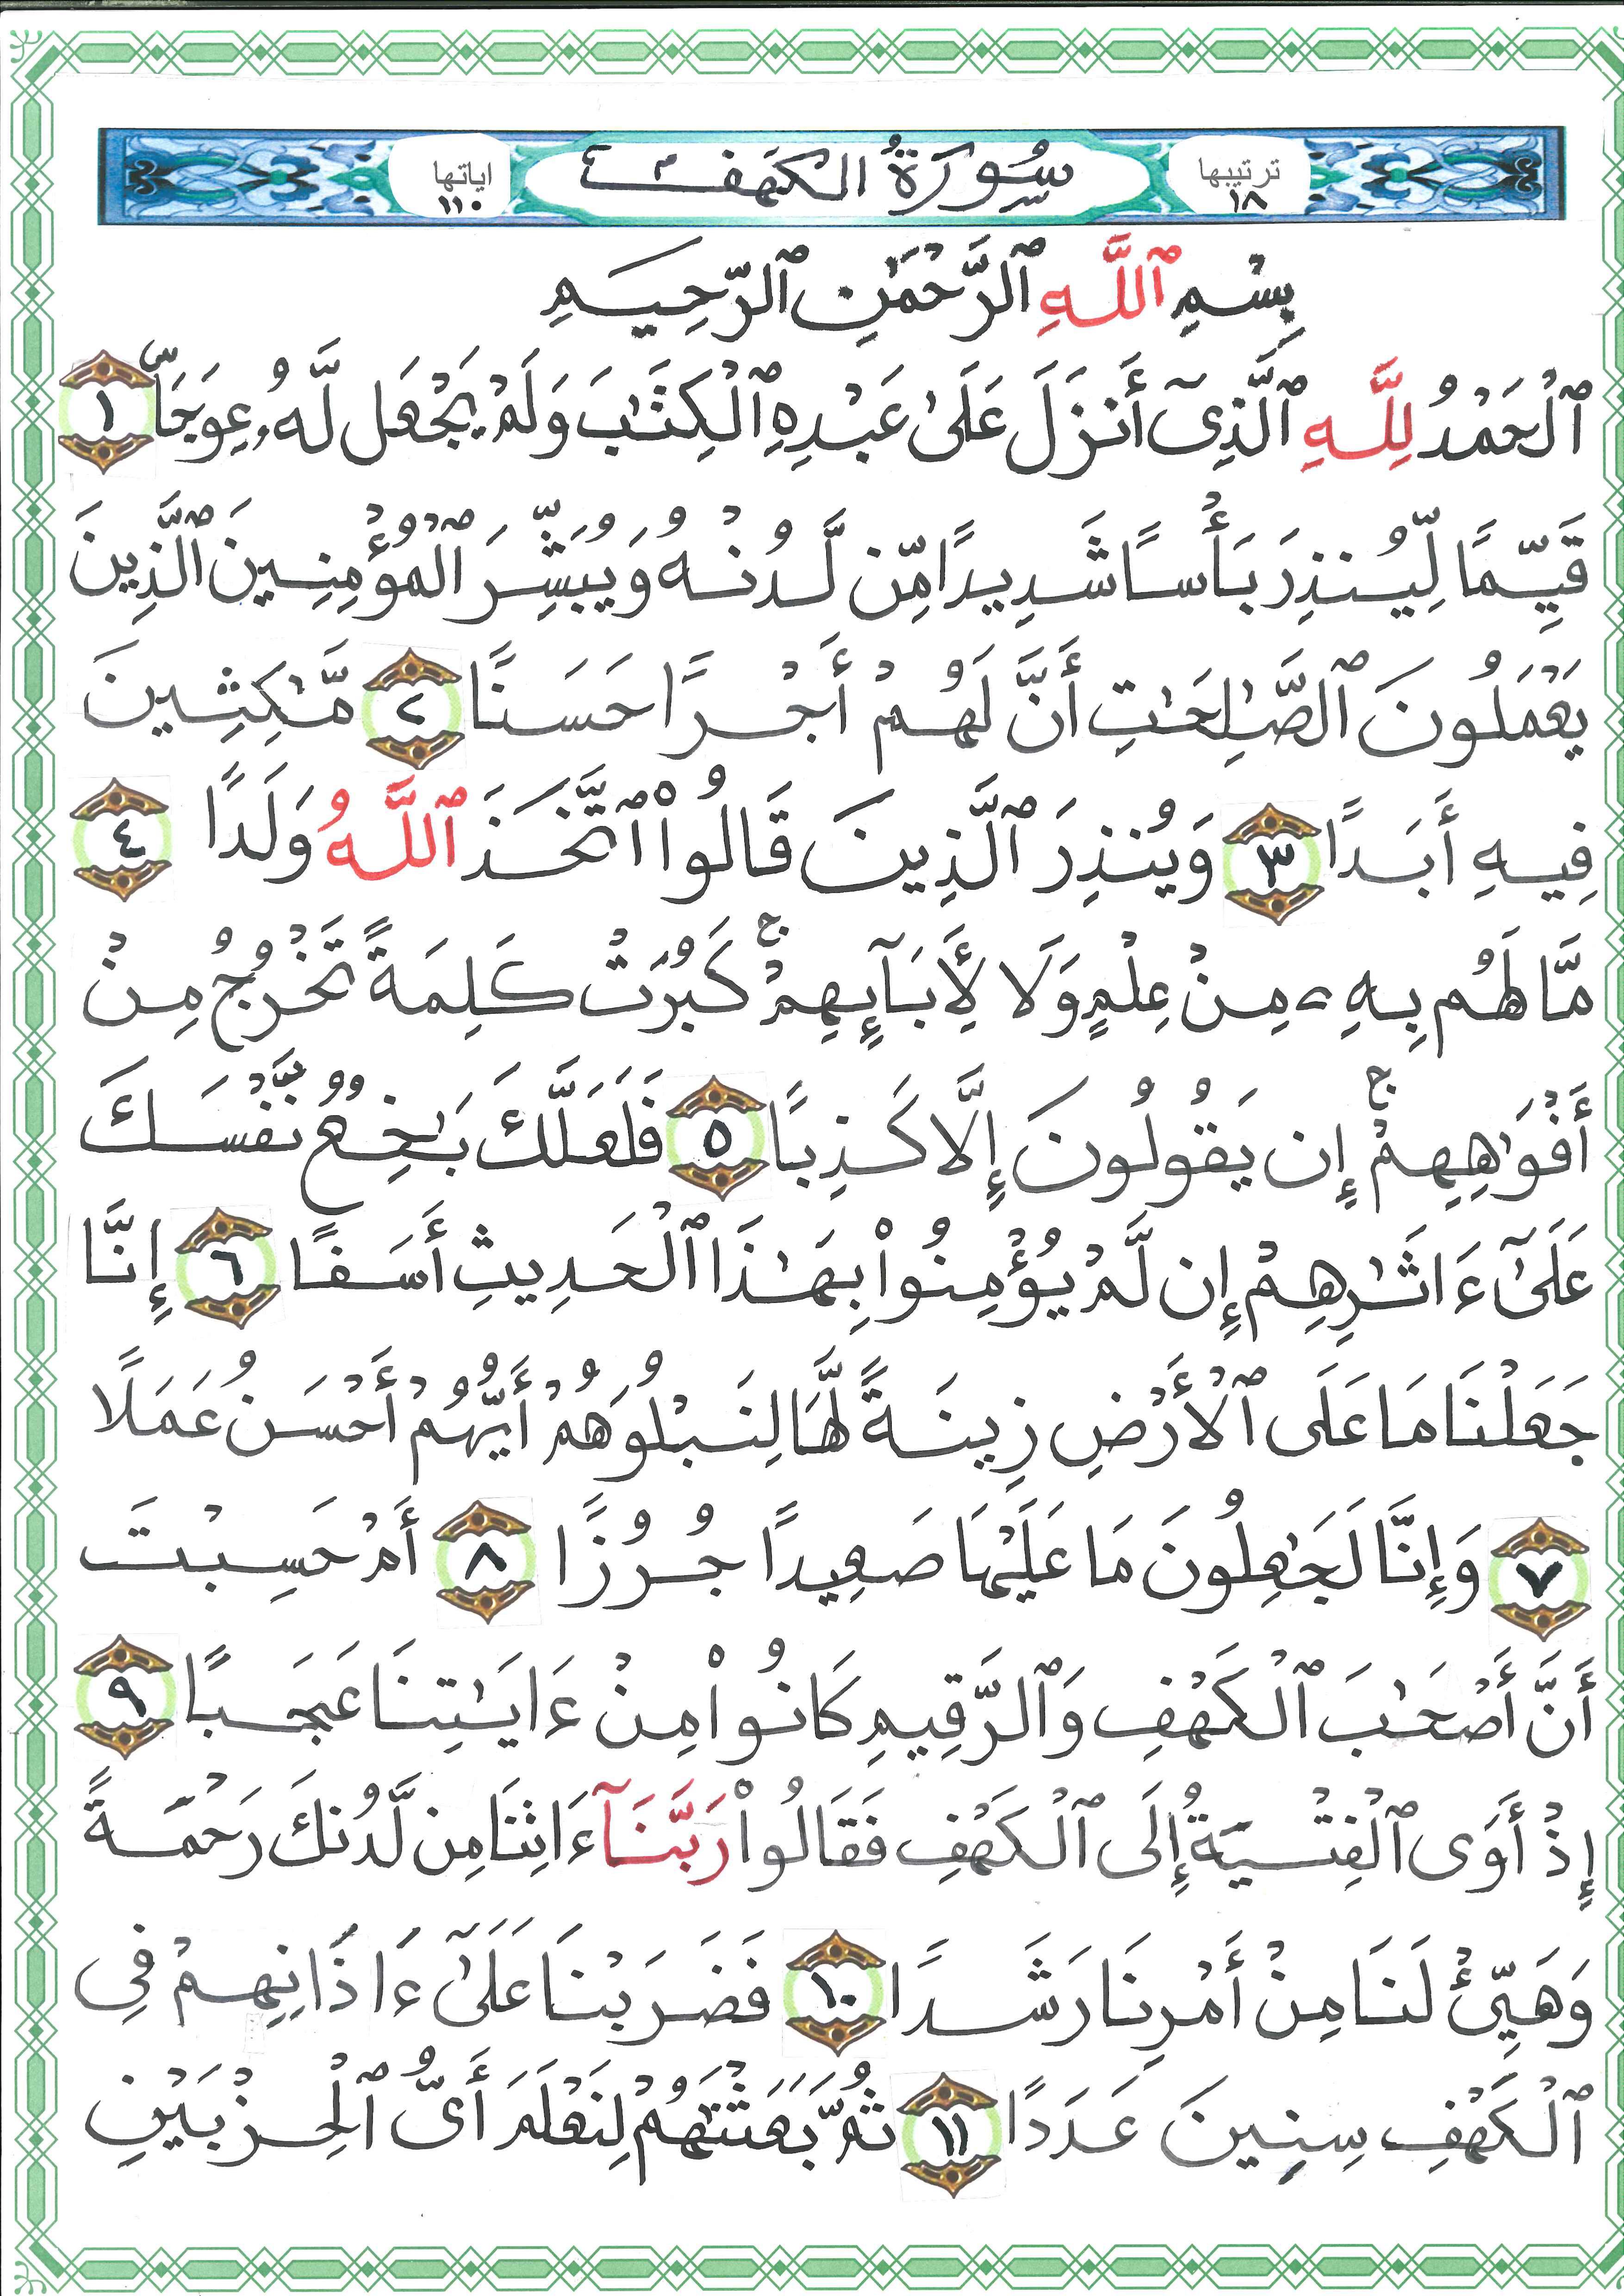 ترتيبها ١٨ سُورَةُ الكَهف اياتها ١١٠
بِسْمِ ٱللَّهِ ٱلرَّحْمَٰنِ ٱلرَّحِيمِ
ٱلْحَمْدُ لِلَّهِ ٱلَّذِىٓ أَنزَلَ عَلَىٰ عَبْدِهِ ٱلْكِتَٰبَ وَلَمْ يَجْعَل لَّهُۥ عِوَجَاۜ ١
قَيِّمًا لِّيُنذِرَ بَأْسًا شَدِيدًا مِّن لَّدُنْهُ وَيُبَشِّرَ ٱلْمُؤْمِنِينَ ٱلَّذِينَ
يَعْمَلُونَ ٱلصَّٰلِحَٰتِ أَنَّ لَهُمْ أَجْرًا حَسَنًا ٢ مَّٰكِثِينَ
فِيهِ أَبَدًا ٣ وَيُنذِرَ ٱلَّذِينَ قَالُوا۟ ٱتَّخَذَ ٱللَّهُ وَلَدًا ٤
مَّا لَهُم بِهِۦ مِنْ عِلْمٍ وَلَا لِأَبَآئِهِمْ ۚ كَبُرَتْ كَلِمَةً تَخْرُجُ مِنْ
أَفْوَٰهِهِمْ ۚ إِن يَقُولُونَ إِلَّا كَذِبًا ٥ فَلَعَلَّكَ بَٰخِعٌ نَّفْسَكَ
عَلَىٰٓ ءَاثَٰرِهِمْ إِن لَّمْ يُؤْمِنُوا۟ بِهَٰذَا ٱلْحَدِيثِ أَسَفًا ٦ إِنَّا
جَعَلْنَا مَا عَلَى ٱلْأَرْضِ زِينَةً لَّهَا لِنَبْلُوَهُمْ أَيُّهُمْ أَحْسَنُ عَمَلًا
٧ وَإِنَّا لَجَٰعِلُونَ مَا عَلَيْهَا صَعِيدًا جُرُزًا ٨ أَمْ حَسِبْتَ
أَنَّ أَصْحَٰبَ ٱلْكَهْفِ وَٱلرَّقِيمِ كَانُوا۟ مِنْ ءَايَٰتِنَا عَجَبًا ٩
إِذْ أَوَى ٱلْفِتْيَةُ إِلَى ٱلْكَهْفِ فَقَالُوا۟ رَبَّنَآ ءَاتِنَا مِن لَّدُنكَ رَحْمَةً
وَهَيِّئْ لَنَا مِنْ أَمْرِنَا رَشَدًا ١٠ فَضَرَبْنَا عَلَىٰٓ ءَاذَانِهِمْ فِى
ٱلْكَهْفِ سِنِينَ عَدَدًا ١١ ثُمَّ بَعَثْنَٰهُمْ لِنَعْلَمَ أَىُّ ٱلْحِزْبَيْنِ